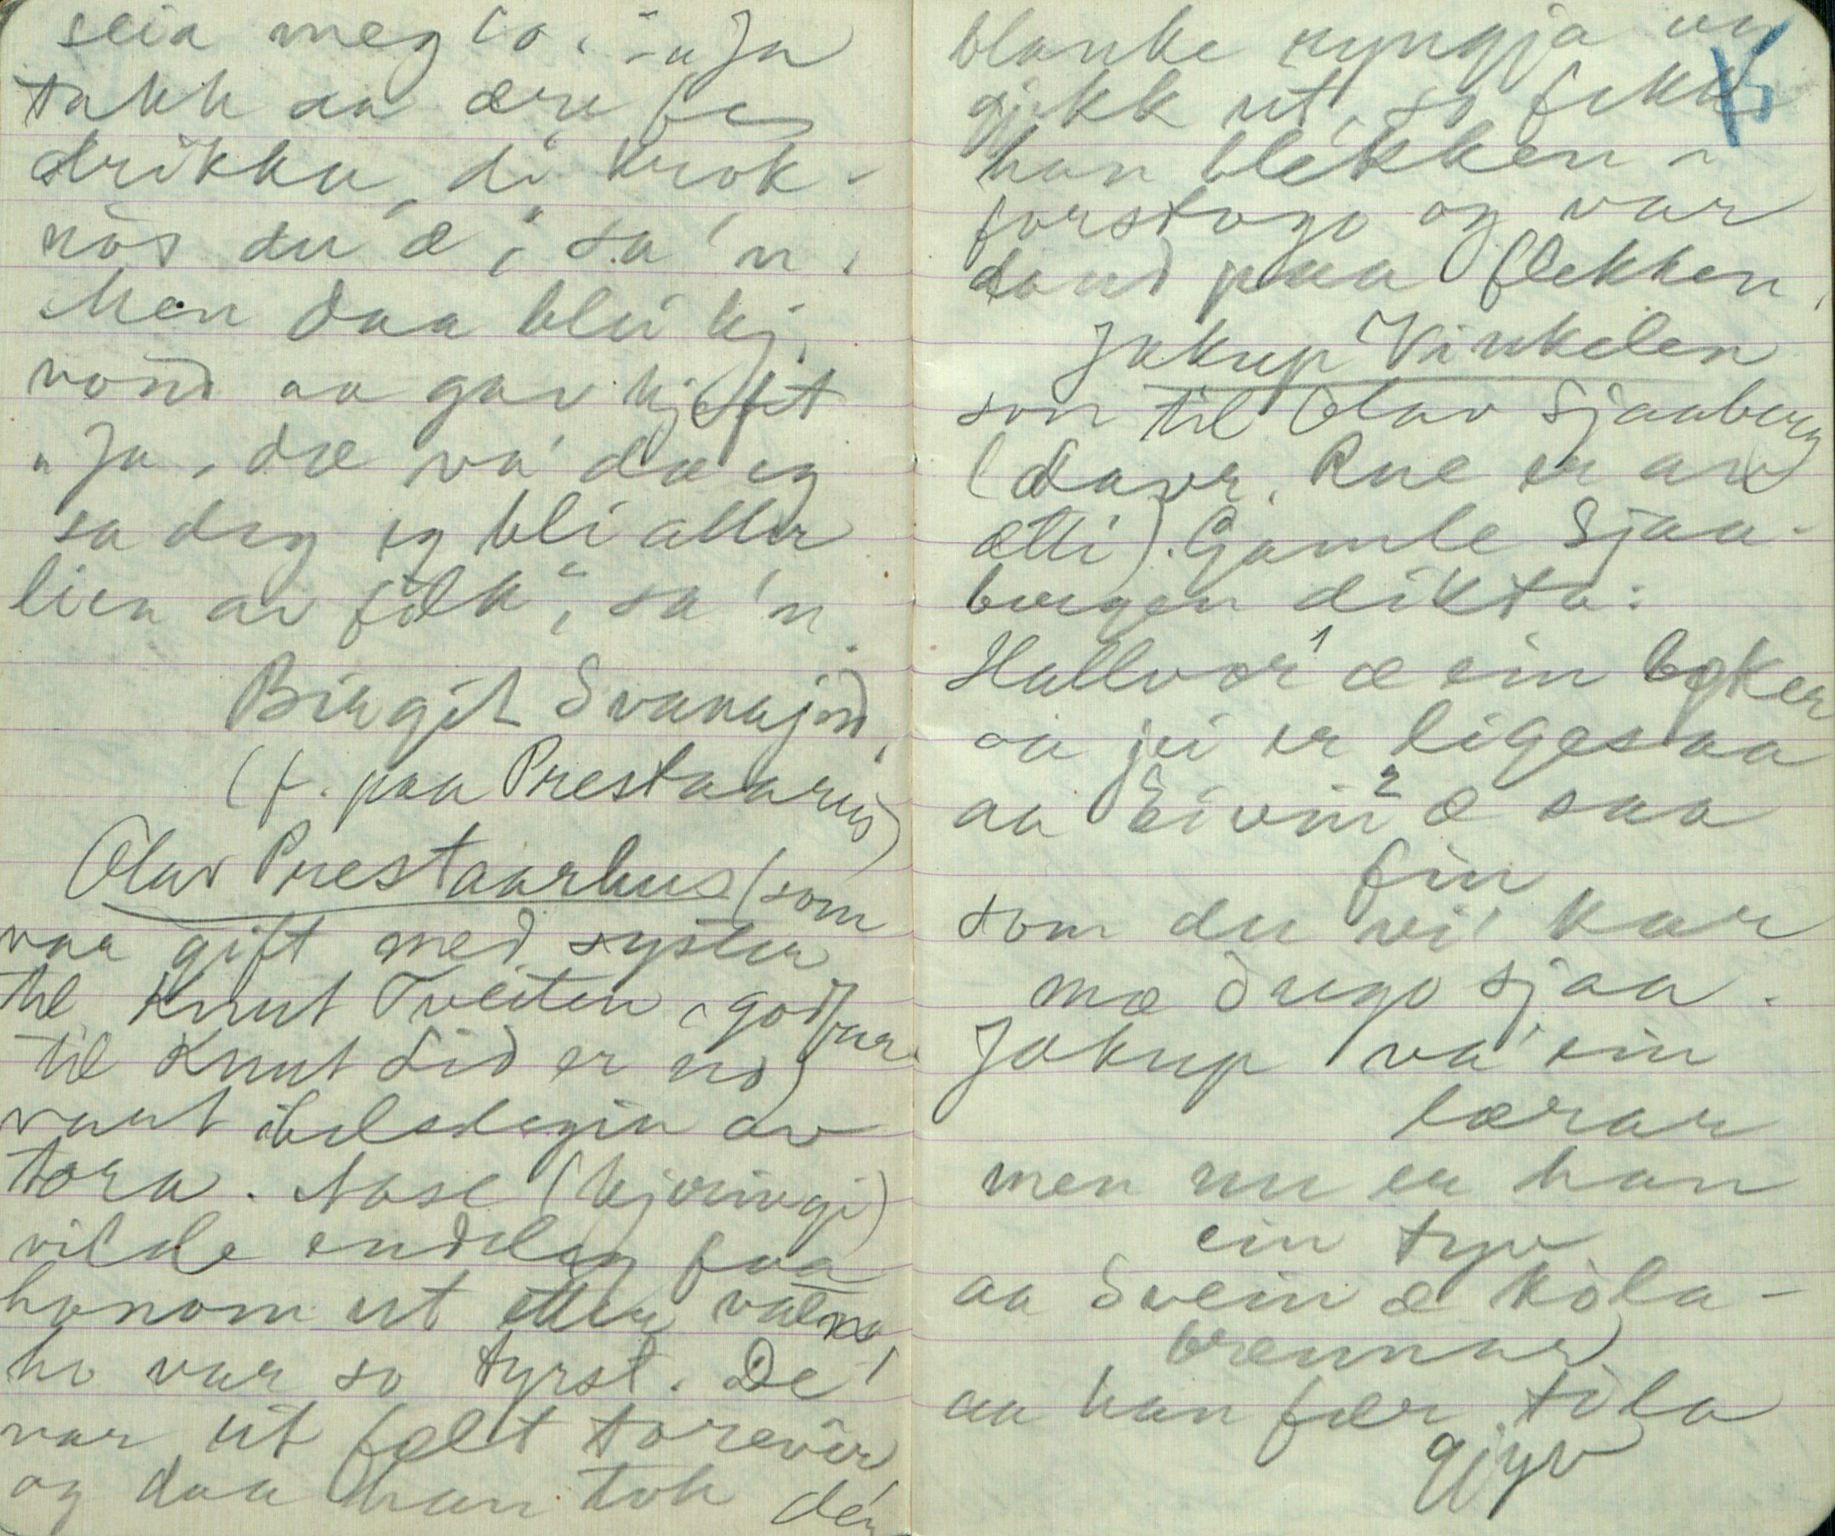 seia meg to. "Ja
takk aa ære fes
drikka, di krok-
nòs du æ", sa 'n.
Men daa blei kj.
vond aa gav kjeft
"Ja, dæ va' dæ eg
sa deg eg bli aller
lien av fölk", sa 'n.
Birgit Svanajord,
(f. paa Prestaarhus)
Olav Prestaarhus (som
var gift med syster
til Knut Tveiten, godfar
til Knut Lid er no)
vart ihelslegin av
tora. Aase (kjeringi)
vilde endeleg faa
honom ut etter vatne,
ho var so tyrst. De'
var eit fælt torevêr
og daa han tok den
blanke ryngja og
gjekk ut, so fekk
han blekken i
forstogo og var
daud paa flekken.
15
Jakup Vinkelen
son til Olav Sjaaberg
(Davr. Rue er av
ætti). Gamle Sjaa-
bergen dikta:
Hallvor¹ æ ein bøker
aa jei er ligesaa
aa Eivin² æ saa
fin
som du vi' kar
mæ dugo sjaa.
Jakup va' ein
lærar
men nu er han
ein tyv
aa Svein æ kòla-
brennar
aa han fær tòla
gjyv